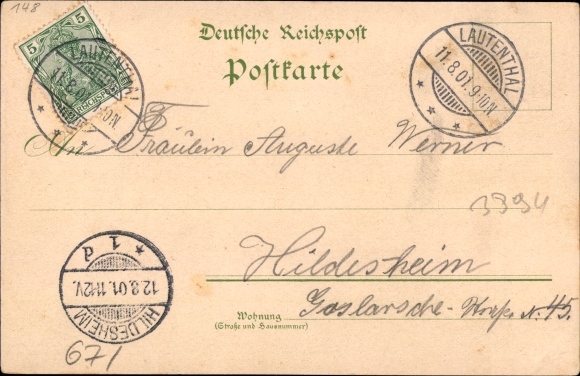 148
Deutsche Reichspost
Postkarte
5 5
REICHSPOST
LAUTENTHAL
11.8.01.9-10N.
LAUTENTHAL
11.8.01.9-10N.
An Fräulein Auguste Werner
3394
Hildesheim
Goslarsche- N. 45.
Wohnung
(Straße und Hausnummer)
* 1 d
12.8.01.11-12V.
HILDESHEIM
671